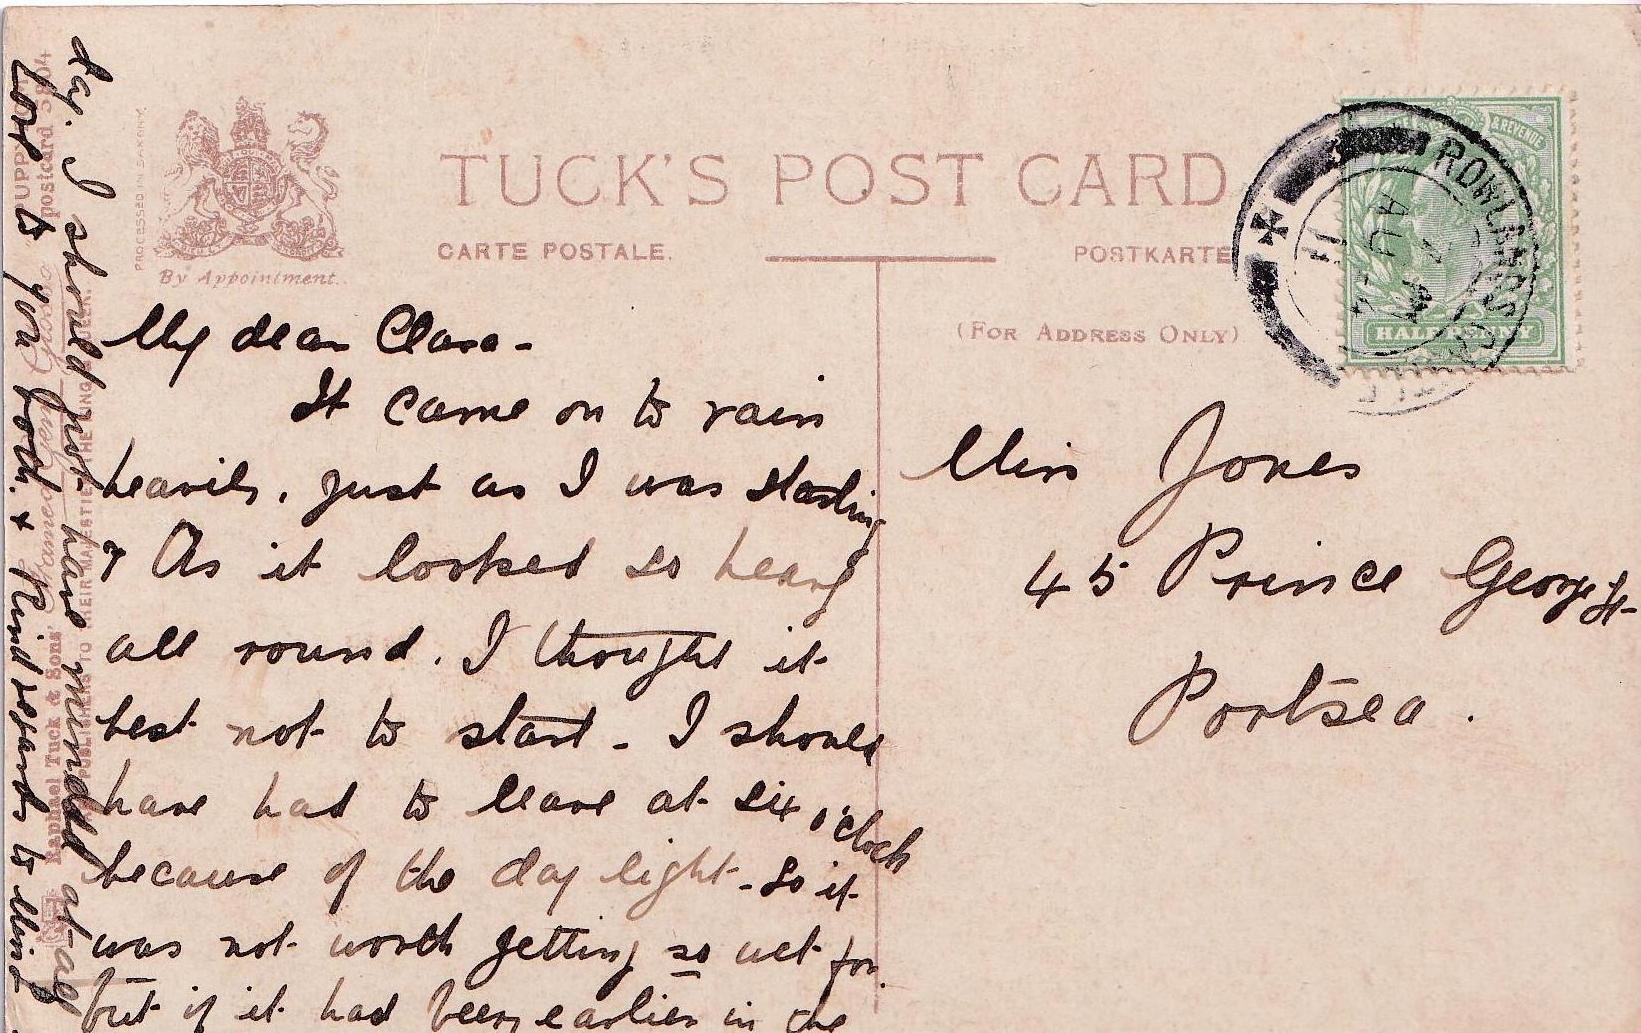 TUCK'S POST CARD
CARTE POSTALE.
POSTKARTE
(FOR ADDRESS ONLY)
PROCESSED IN SAXONY.
By Appointment.
& REVENUE
HALFPENNY
ROWLANDS CASTLE
AU
11
My dear Clara -
It came on to rain
heavily, just as I was starting
& As it looked so heavy
all round. I thought it
best not to start - I should
have had to leave at six o'clock
because of the day light - so it
was not worth getting so wet for
but if it had been earlier in the
day. I should not have minded at all
Love to you both. & Kind regards to Miss
Miss Jones
45 Prince George St
Portsea.
Raphael Tuck & Sons'
postcard
PUBLISHERS TO THEIR MAJESTIES THE KING & QUEEN.